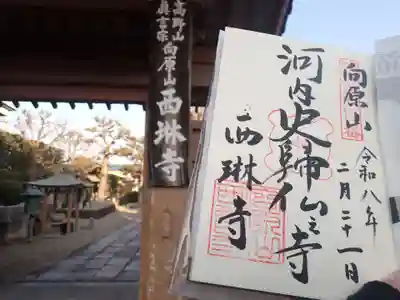 高野山
真言宗
向原山
西琳寺
向原山
令和八年
二月二十一日
河内史跡仏之寺
西琳寺